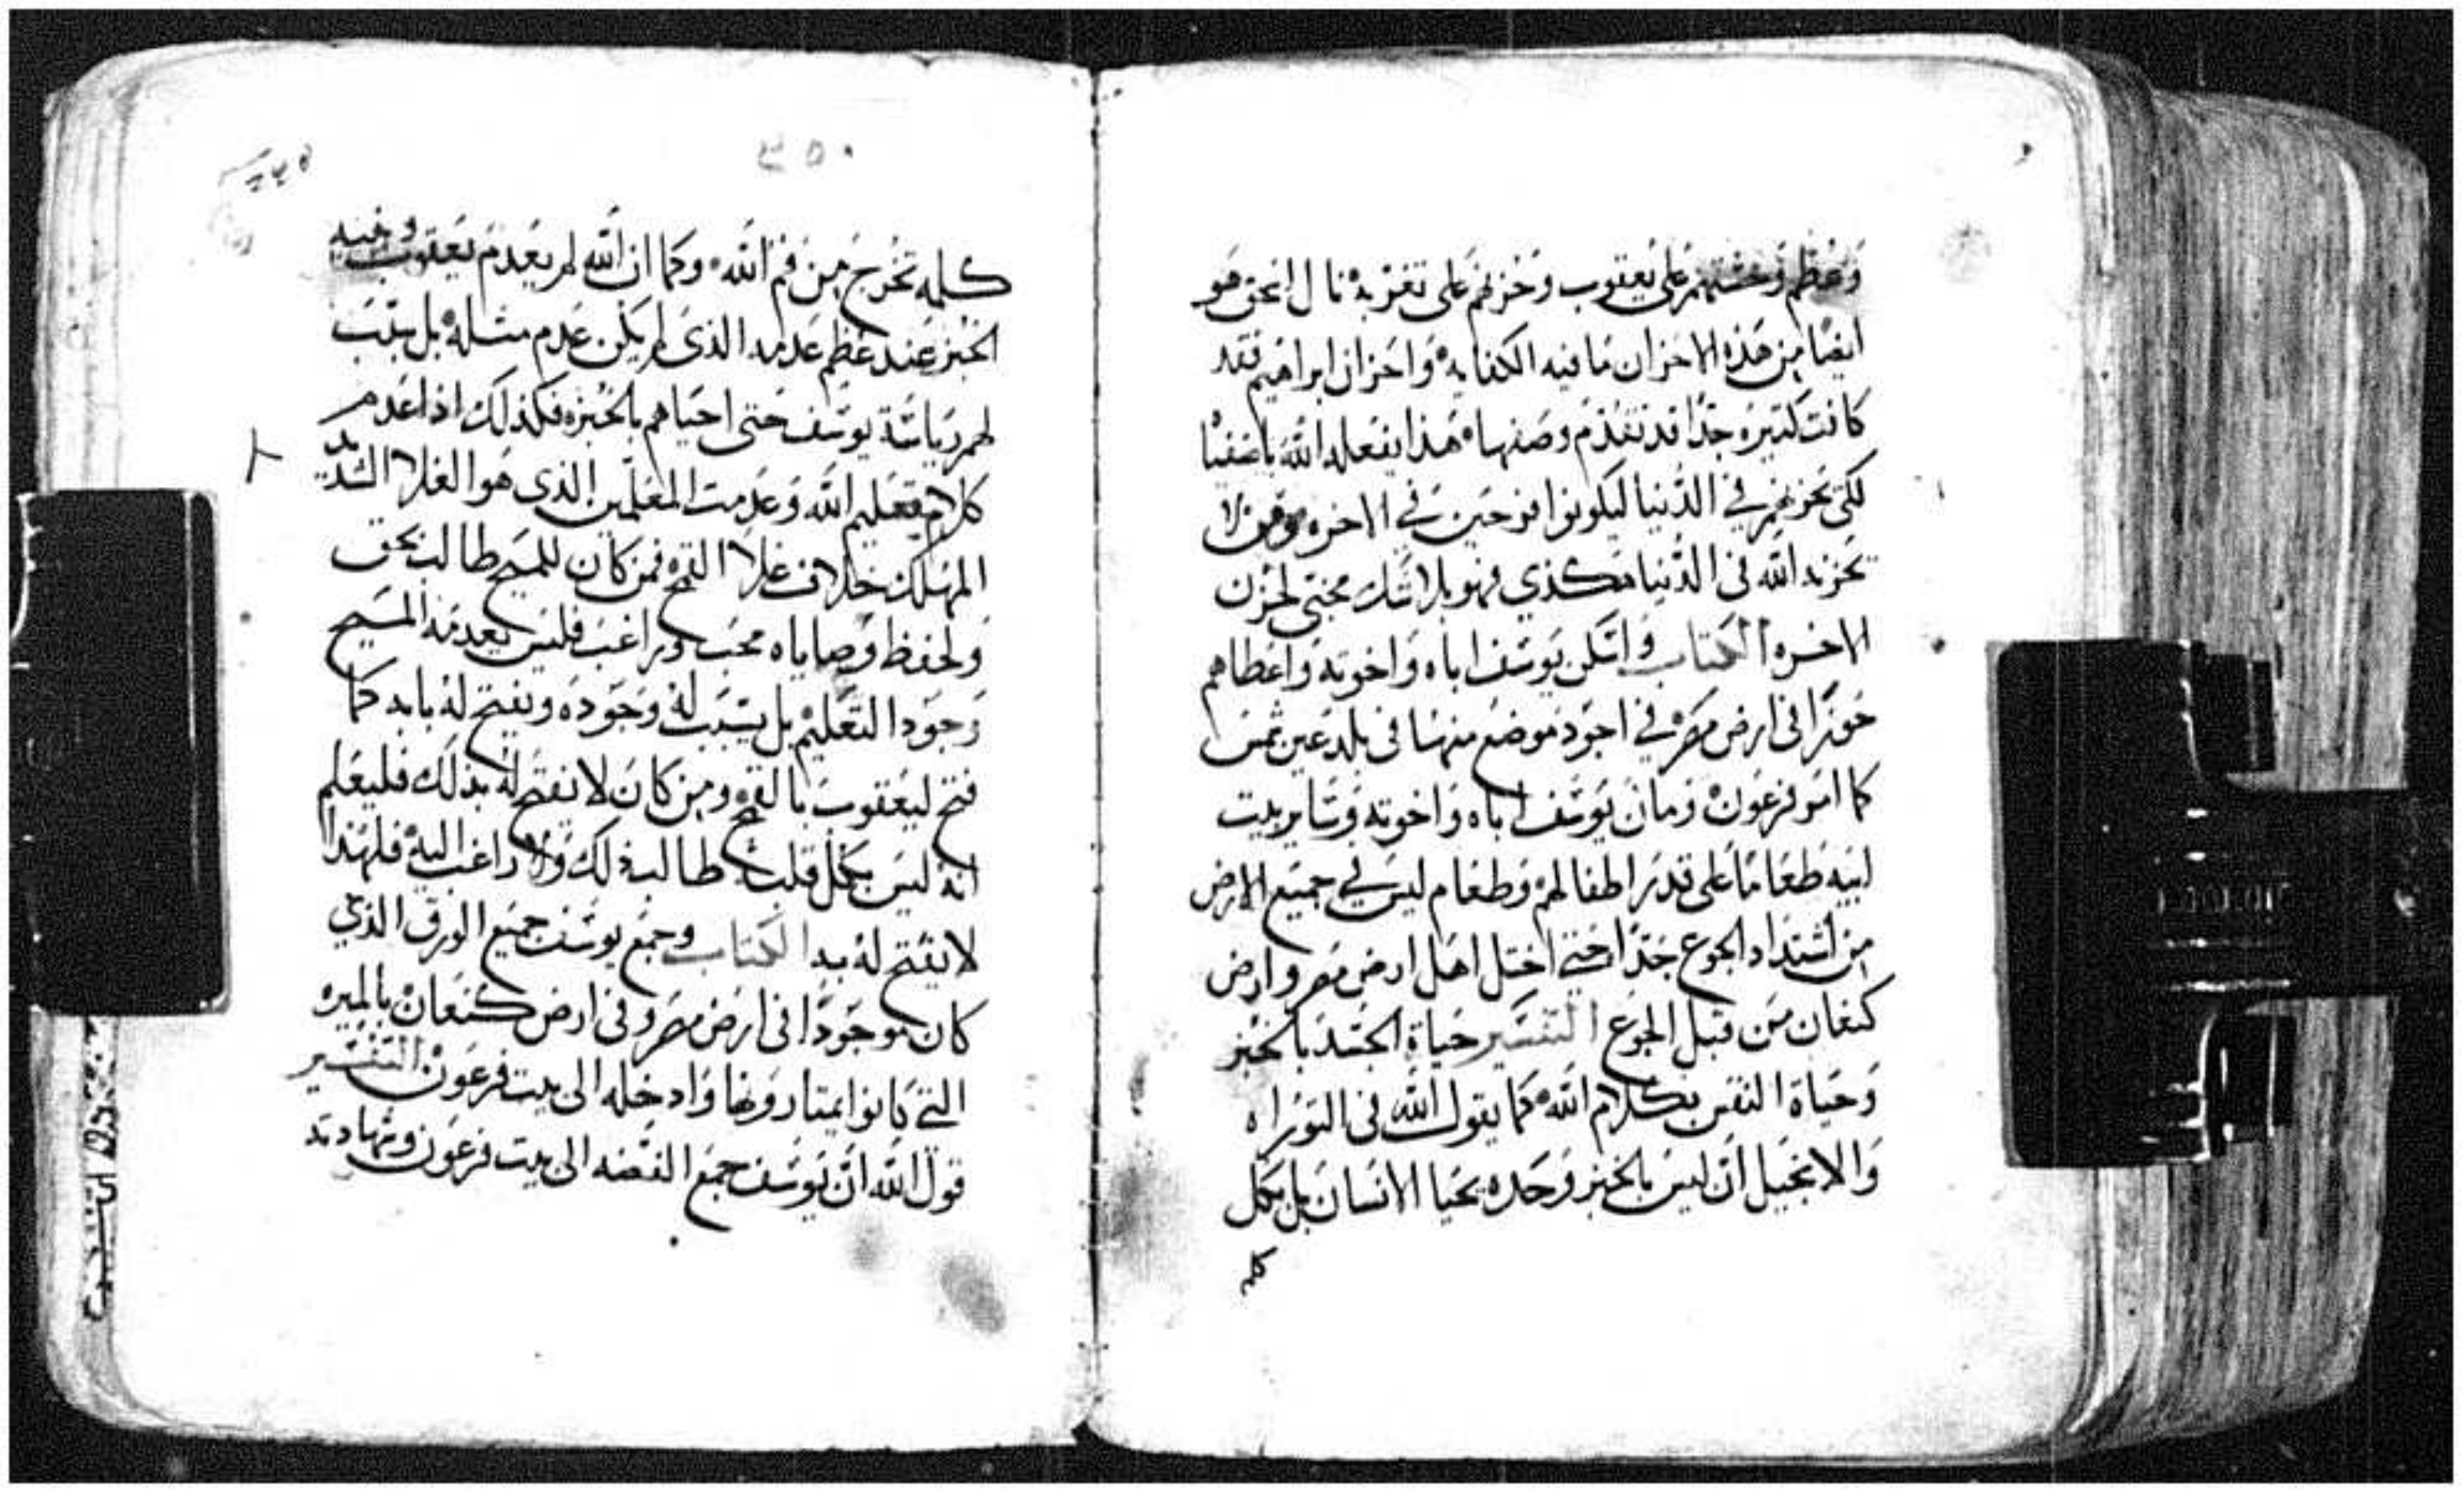 وعظم وحشتهم على يعقوب وحزنهم على تغربه نال اسحق هو
ايضا من هذه الاحزان ما فيه الكفايه واحزان ابراهيم فقد
كانت كثيره جدا قد تقدم وصفها هذا يفعله الله باصفيا
لكى يحزنهم في الدنيا ليكونوا فرحين في الاخره ومن لا
يحزنه الله فى الدنيا هكذى فهو بلا شك مخبى لحزن
الاخره الكتاب واسكن يوسف اباه واخوته واعطاهم
حوزا فى ارض مصر في اجود موضع منها فى بلد عين شمس
كما امر فرعون ومان يوسف اباه واخوته وساير بيت
ابيه طعاما على قدر اطفالهم وطعام ليس في جميع الارض
من اشتداد الجوع جدا حتي اختل اهل ارض مصر وارض
كنعان من قبل الجوع التفسير حياة الجسد بالخبز
وحياة النفس بكلام الله كما يقول الله فى التوراه
والانجيل ان ليس بالخبز وحده يحيا الانسان بل بكل
كله
٣٥٠
كلمه تخرج من فم الله وكما ان الله لم يعدم يعقوب وبنيه
الخبز عند عظم عدمه الذى لم يكن عدم مثله بل سبب
لهم رياسة يوسف حتى احياهم بالخبزه فكذلك اذا عدم
كلام تعليم الله وعدمت المعلمين الذى هو الغلا الشديد
المهلك خلاف غلا القمح فمن كان للمسيح طالب بحق
ولحفظ وصاياه محب وراغب فليس يعدمه المسيح
وجود التعليم بل يسبب له وجوده ويفتح له بابه كما
فتح ليعقوب بالقمح ومن كان لا يفتح له بذلك فليعلم
انه ليس بكل قلبه طالب ذلك ولا راغب اليه فلهذا
لا يفتح له بدا الكتاب وجمع يوسف جميع الورق الذي
كان موجودا فى ارض مصر وفى ارض كنعان بالميره
التي كانوا يمتارونها وادخله الى بيت فرعون التفسير
قول الله ان يوسف جمع الفضه الى بيت فرعون وشهادته